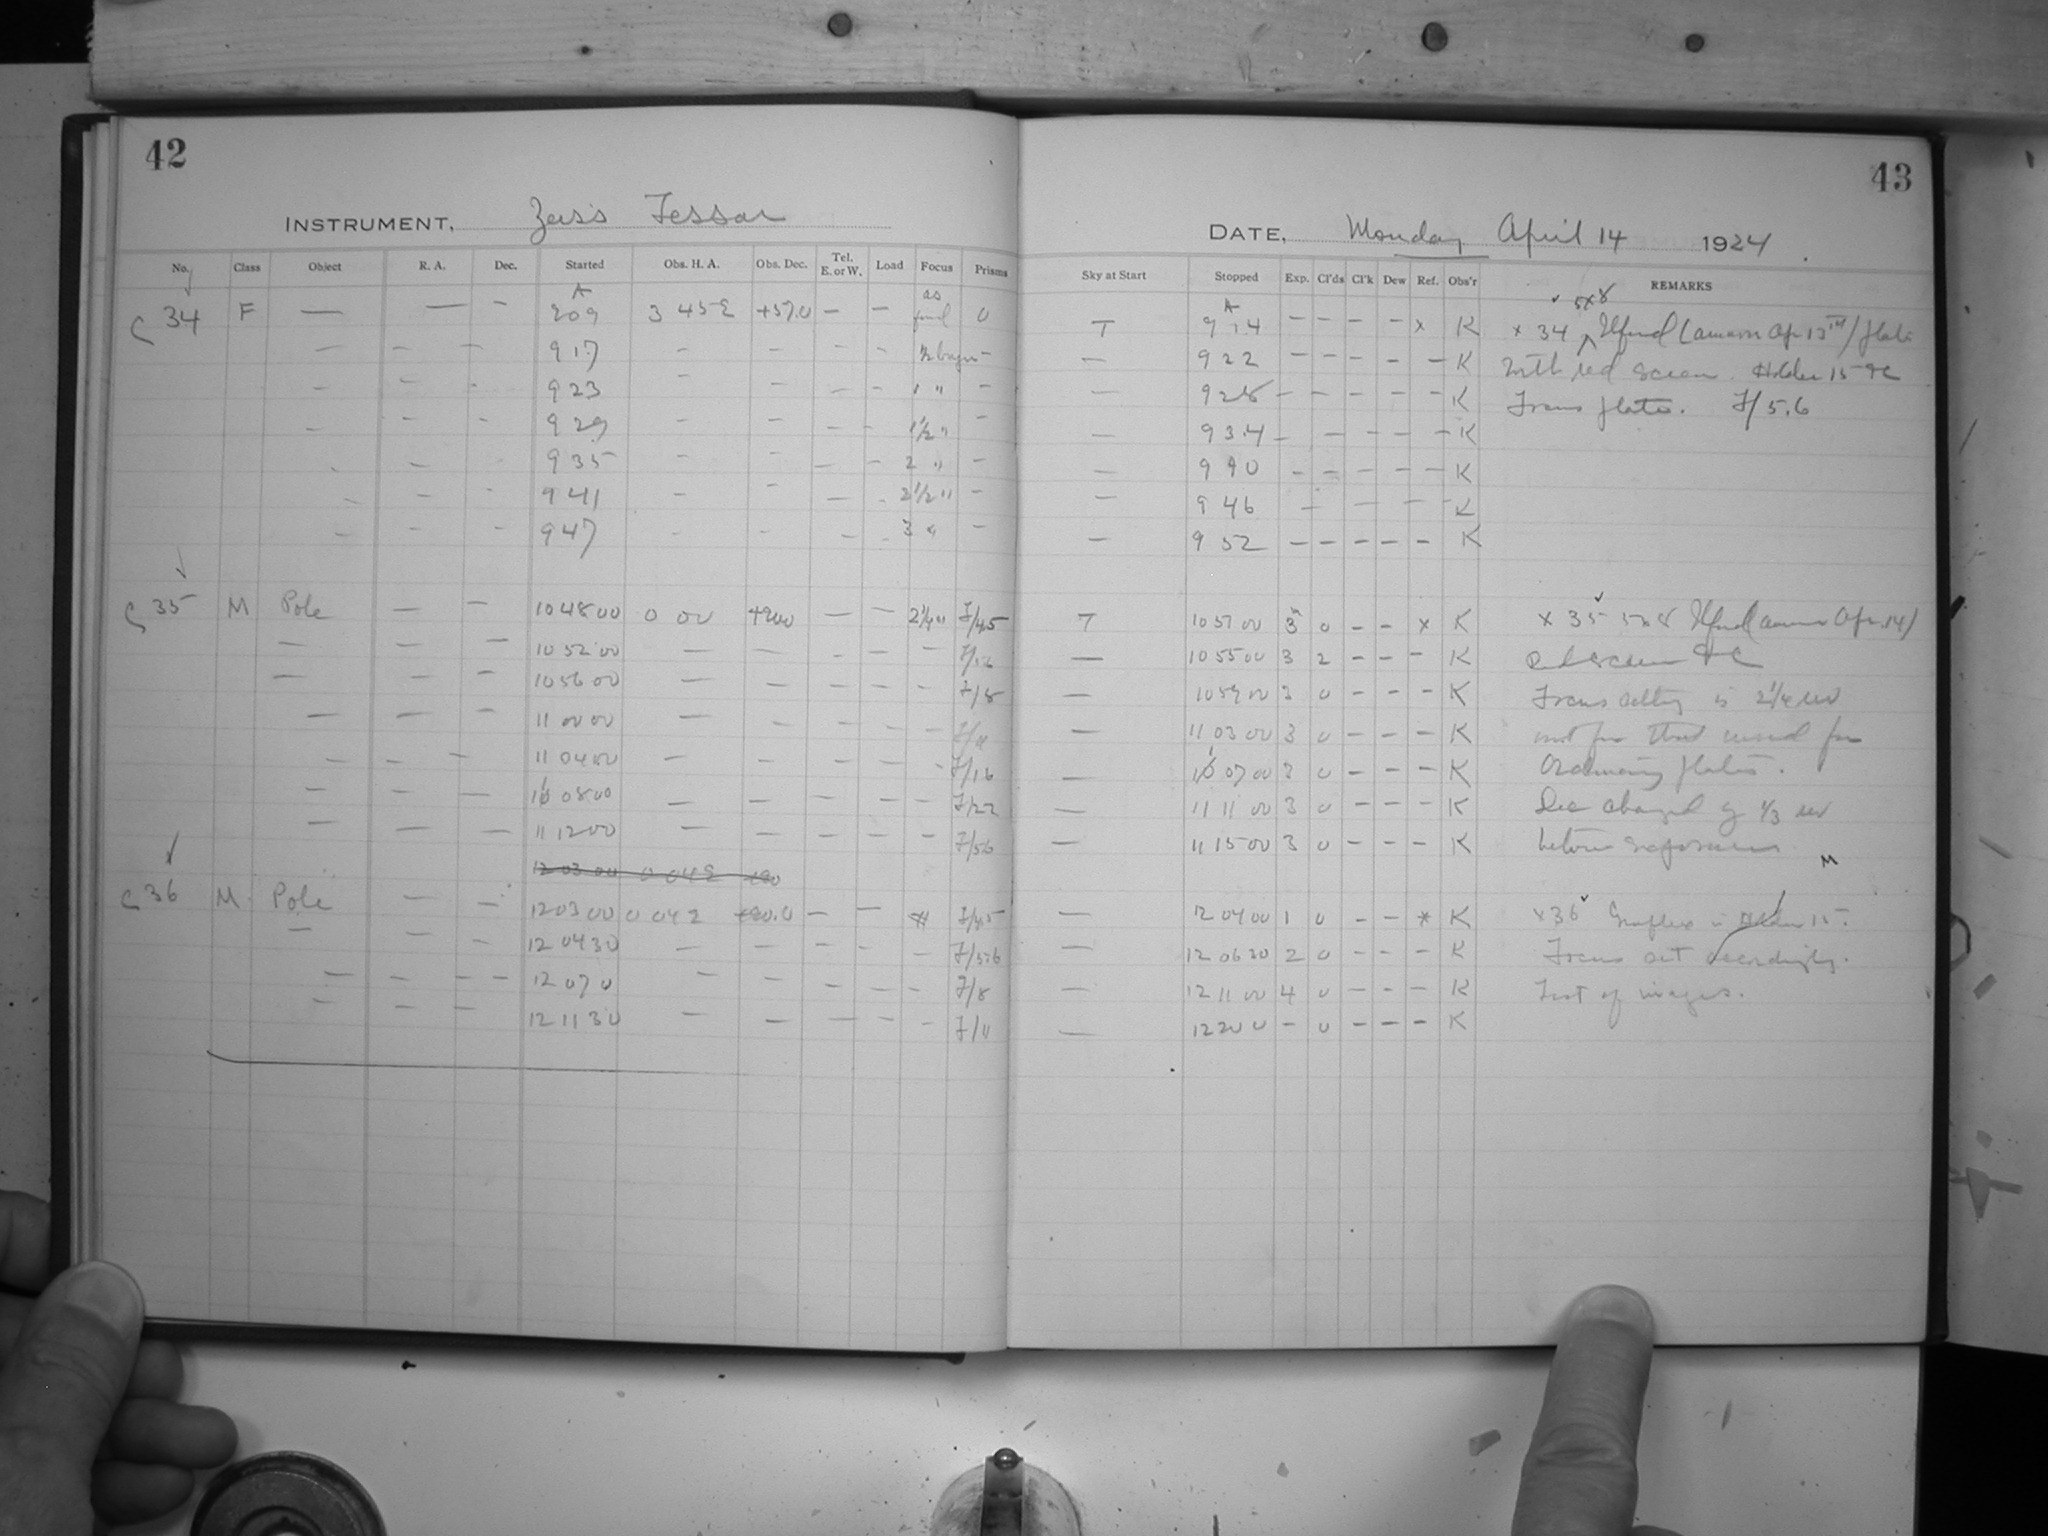 42
43
INSTRUMENT, Zeiss Tessar
DATE, Monday April 14 1924
No. Class Object R. A. Dec. Started Obs. H. A. Obs. Dec. Tel. E. or W. Load Focus Prisms
Sky at Start Stopped Exp. Cl'ds Cl'k Dew Ref. Obs'r REMARKS
C 34 F — — — 209 3 452 +57.0 — — as 0
T 9 14 — — — — x K x 34 5x8 Ilford
— — — 9 17 — — — —
— 9 22 — — — — — K with red screen Holder 15
— — — 9 23 — — — — 1 " —
— 9 28 — — — — — K Focus plate. F/5.6
— — — 9 29 — — — — 1 1/2 " —
— 9 34 — — — — — K
— — — 9 35 — — — — 2 " —
— 9 40 — — — — — K
— — — 9 41 — — — — 2 1/2 " —
— 9 46 — — — — K
— — — 9 47 — — — — 3 " —
— 9 52 — — — — — K
C 35 M Pole — — 10 48 00 0 00 +90.0 — — 2 1/4 " F/4.5
T 10 51 00 3 0 — — x K x 35 5x8 Ilford
— — — 10 52 00 — — — — —
— 10 55 00 3 2 — — — K red screen
— — — 10 56 00 — — — — — F/8
— 10 59 00 3 0 — — — K Focus setting is 2 1/4 rev
— — — 11 00 00 — — — — — F/11
— 11 03 00 3 0 — — — K out from that used for
— — — 11 04 00 — — — — — F/16
— 11 07 00 3 0 — — — K Ordinary plates.
— — — 11 08 00 — — — — — F/22
— 11 11 00 3 0 — — — K Dec changed by 1/3 rev
— — — 11 12 00 — — — — —
— 11 15 00 3 0 — — — K between exposures
12 03 00 0 042 +90
M
C 36 M Pole — — 12 03 00 0 042 +90.0 — — F/4.5
— 12 04 00 1 0 — — K x 36 Graflex in Holder 15.
— — — 12 04 30 — — — — — F/5.6
— 12 06 30 2 0 — — — K Focus set accordingly.
— — — 12 07 0 — — — — — F/8
— 12 11 00 4 0 — — — K Test of images.
— — — 12 11 30 — — — — — F/11
— 12 20 0 — 0 — — — K